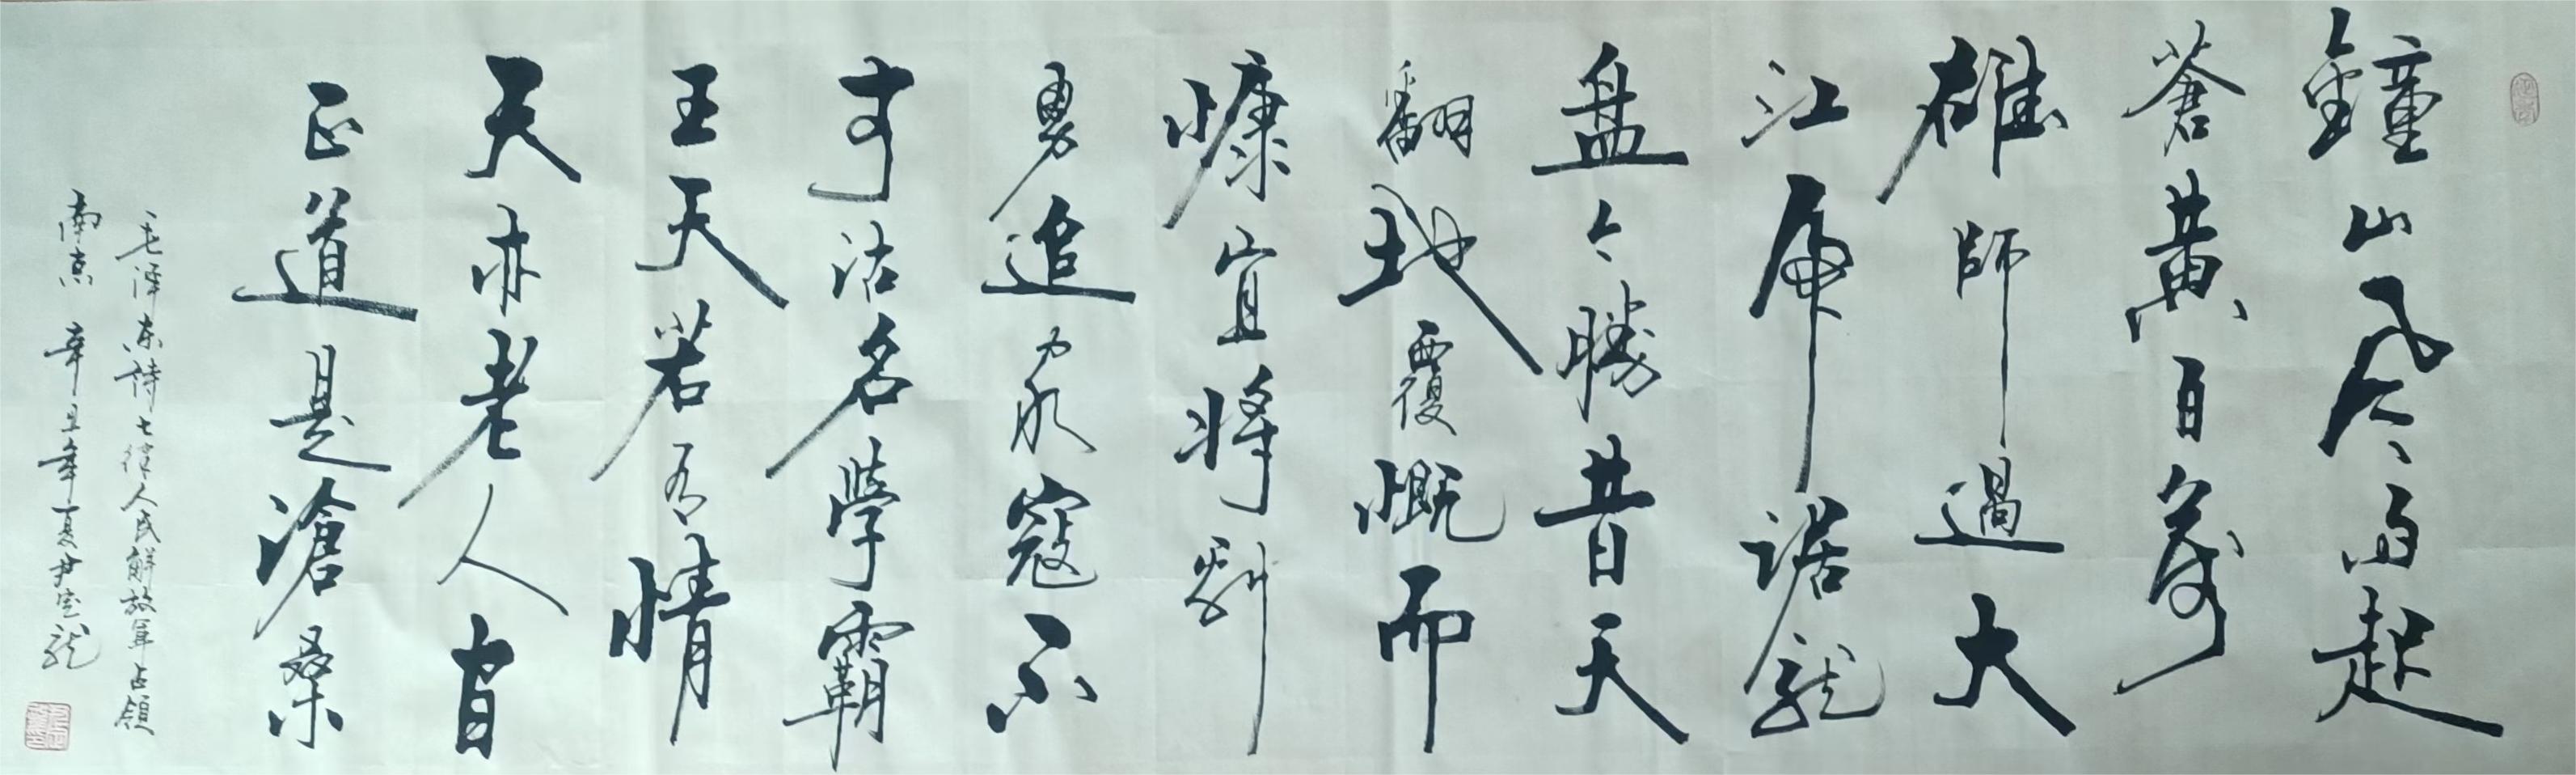 鐘山風雨起
蒼黃百萬
雄師過大
江虎踞龍
盤今勝昔天
翻地覆慨而
慷宜將剩
勇追窮寇不
可沽名學霸
王天若有情
天亦老人間
正道是滄桑
毛泽东詩七律人民解放军占領
南京 辛丑年夏尹龍